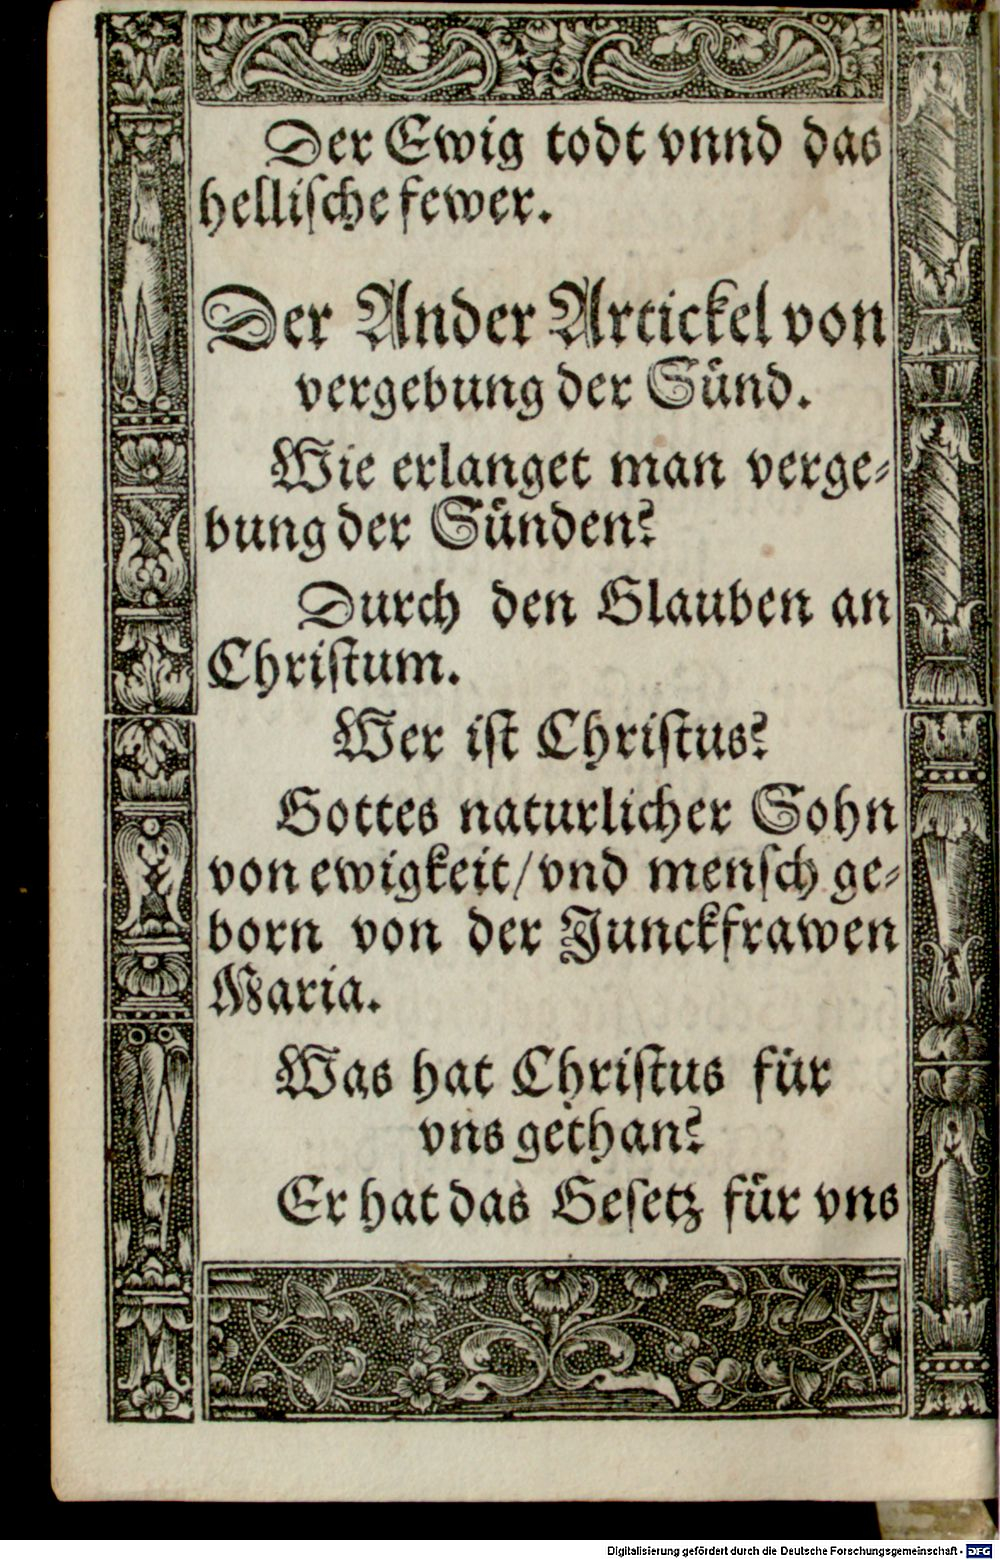 Der Ewig todt vnnd das
hellische fewer.
Der Ander Artickel von
vergebung der Sünd.
Wie erlanget man verge-
bung der Sünden?
Durch den Glauben an
Christum.
Wer ist Christus?
Gottes naturlicher Sohn
von ewigkeit/vnd mensch ge-
born von der Junckfrawen
Maria.
Was hat Christus für
vns gethan?
Er hat das Gesetz für vns
Digitalisierung gefördert durch die Deutsche Forschungsgemeinschaft - DFG